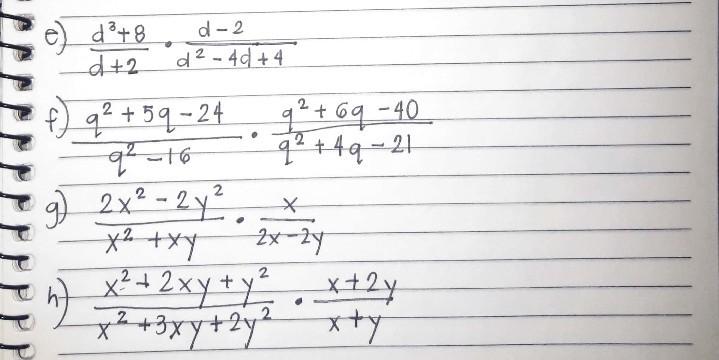 e) d³+8/d+2 · d-2/d²-4d+4
f) q²+5q-24/q²-16 · q²+6q-40/q²+4q-21
g) 2x²-2y²/x²+xy · x/2x-2y
h) x²+2xy+y²/x²+3xy+2y² · x+2y/x+y